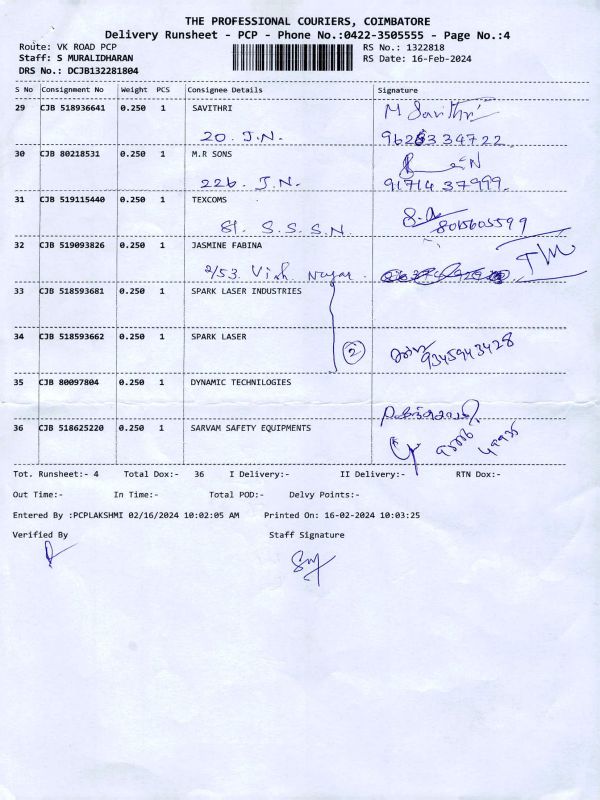 THE PROFESSIONAL COURIERS, COIMBATORE
Delivery Runsheet - PCP - Phone No.:0422-3505555 - Page No.:4
Route: VK ROAD PCP RS No.: 1322818
Staff: S MURALIDHARAN RS Date: 16-Feb-2024
DRS No.: DCJB132281804
S No Consignment No Weight PCS Consignee Details Signature
29 CJB 518936641 0.250 1 SAVITHRI M Savithri
20. J.N. 9626334722
30 CJB 80218531 0.250 1 M.R SONS
226. J.N. 9171437999
31 CJB 519115440 0.250 1 TEXCOMS
81. S.S.S.N. 8015605599
32 CJB 519093826 0.250 1 JASMINE FABINA
2/53. Nagar.
33 CJB 518593681 0.250 1 SPARK LASER INDUSTRIES
34 CJB 518593662 0.250 1 SPARK LASER
2 9345943428
35 CJB 80097804 0.250 1 DYNAMIC TECHNILOGIES
36 CJB 518625220 0.250 1 SARVAM SAFETY EQUIPMENTS
Tot. Runsheet:- 4 Total Dox:- 36 I Delivery:- II Delivery:- RTN Dox:-
Out Time:- In Time:- Total POD:- Delvy Points:-
Entered By :PCPLAKSHMI 02/16/2024 10:02:05 AM Printed On: 16-02-2024 10:03:25
Verified By Staff Signature